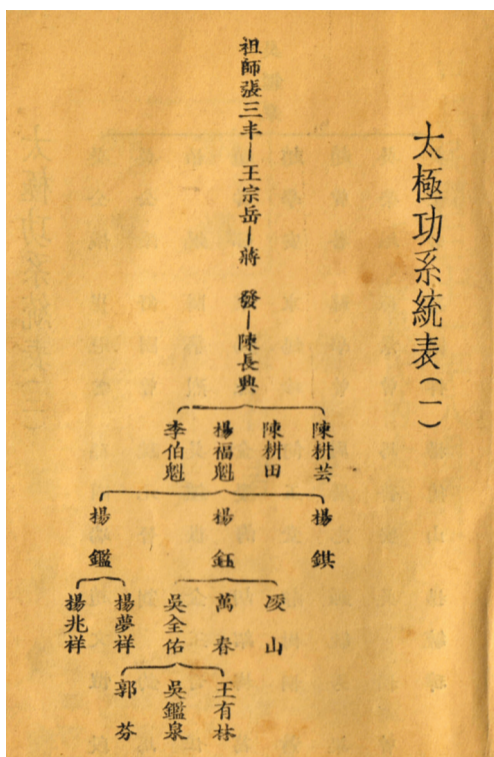 太極功系統表(一)
祖師張三丰—王宗岳—蔣　發—陳長興
陳耕芸
陳耕田
楊福魁
李伯魁
揚　錤
揚　鈺
揚　鑑
凌　山
萬　春
吳全佑
揚夢祥
揚兆祥
王有林
吳鑑泉
郭　芬